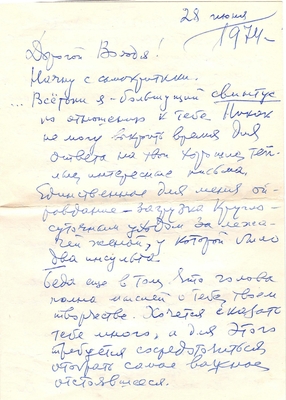 28 июня
1974 г.
Дорогой Володя!
Начну с самокритики.
... Всё-таки я - большущий свинтус
по отношению к тебе. Никак
не могу выкроить время для
ответа на твои хорошие, теп-
лые, интересные письма.
Единственное для меня оп-
равдание - загрузка кругло-
суточным уходом за лежа-
чей женой, у которой было
два инсульта.
Беда еще в том, что голова
полна мыслей о тебе, твоем
творчестве. Хочется сказать
тебе много, а для этого
требуется сосредоточиться,
отобрать самое важное,
отстоявшееся.